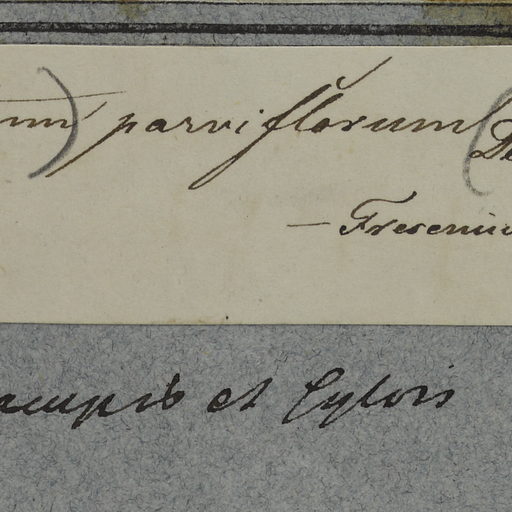 parviflorum (De
— Freseniu
campis et sylvis